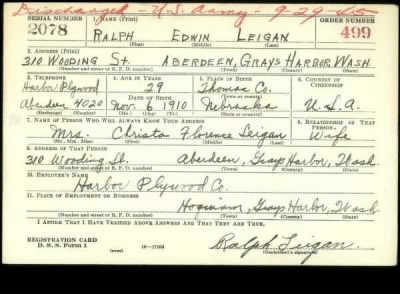 Discharged - U.S. Army - 9-29-45
SERIAL NUMBER 1. NAME (Print) ORDER NUMBER
2078 RALPH EDWIN LEIGAN 499
(First) (Middle) (Last)
2. ADDRESS (Print)
310 WOODING ST. ABERDEEN, GRAYS HARBOR, WASH
(Number and street or R. F. D. number) (Town) (County) (State)
3. TELEPHONE 4. AGE IN YEARS 5. PLACE OF BIRTH 6. COUNTRY OF CITIZENSHIP
Harbor Plywood 29 Thomas Co.
DATE OF BIRTH (Town or county)
Aberdeen 4020 Nov. 6 1910 Nebraska U.S.A.
(Exchange) (Number) (Mo.) (Day) (Yr.) (State or country)
7. NAME OF PERSON WHO WILL ALWAYS KNOW YOUR ADDRESS 8. RELATIONSHIP OF THAT PERSON
Mrs. Christa Florence Leigan Wife
(Mr., Mrs., Miss) (First) (Middle) (Last)
9. ADDRESS OF THAT PERSON
310 Wooding St. Aberdeen, Grays Harbor, Wash
(Number and street or R. F. D. number) (Town) (County) (State)
10. EMPLOYER'S NAME
Harbor Plywood Co.
11. PLACE OF EMPLOYMENT OR BUSINESS
Hoquiam, Grays Harbor, Wash
(Number and street or R. F. D. number) (Town) (County) (State)
I AFFIRM THAT I HAVE VERIFIED ABOVE ANSWERS AND THAT THEY ARE TRUE.
REGISTRATION CARD
D. S. S. Form 1 (over) Ralph Leigan
(Registrant's signature)